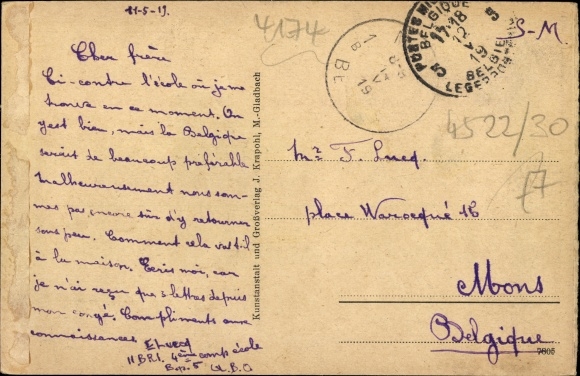 11-5-19.
4174
S-M
Cher frère
Ci-contre l'école où je me
trouve en ce moment. On
y est bien, mais la Belgique
serait de beaucoup préférable
Malheureusement nous som-
mes pas encore sûr d'y retourner
sous peu. Comment cela va-t-il
à la maison. Ecris moi, car
je n'ai reçu que 3 lettres depuis
mon congé. Compliments aux
connaissances
4ème comp école
A.B.O
Kunstanstalt und Großverlag J. Krapohl, M.-Gladbach
POSTES
BELGIQUE
17-18
12
V
19
BELGIE
LEGERPOSTERIJ
5
5
4522/30
Mr F. Lucq.
place Warocqué 16
Mons
Belgique
7805